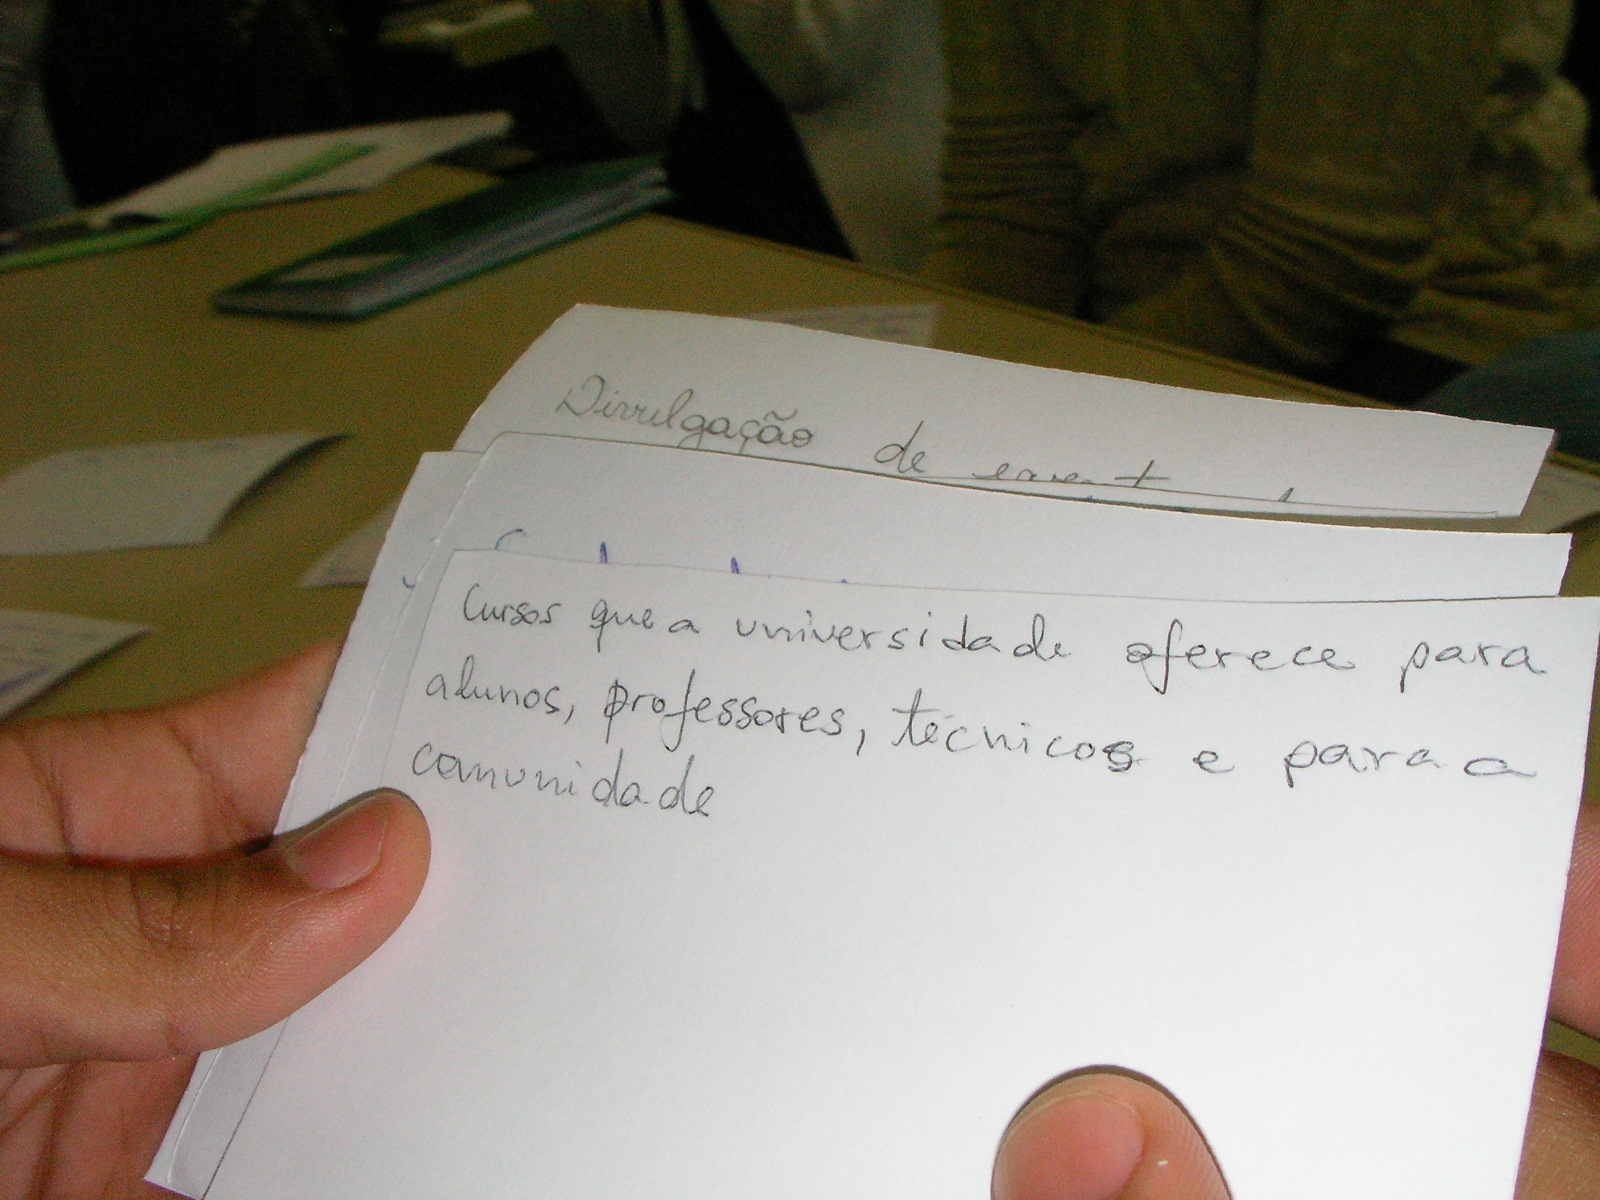 Divulgação de
Cursos que a universidade oferece para
alunos, professores, técnicos e para a
comunidade